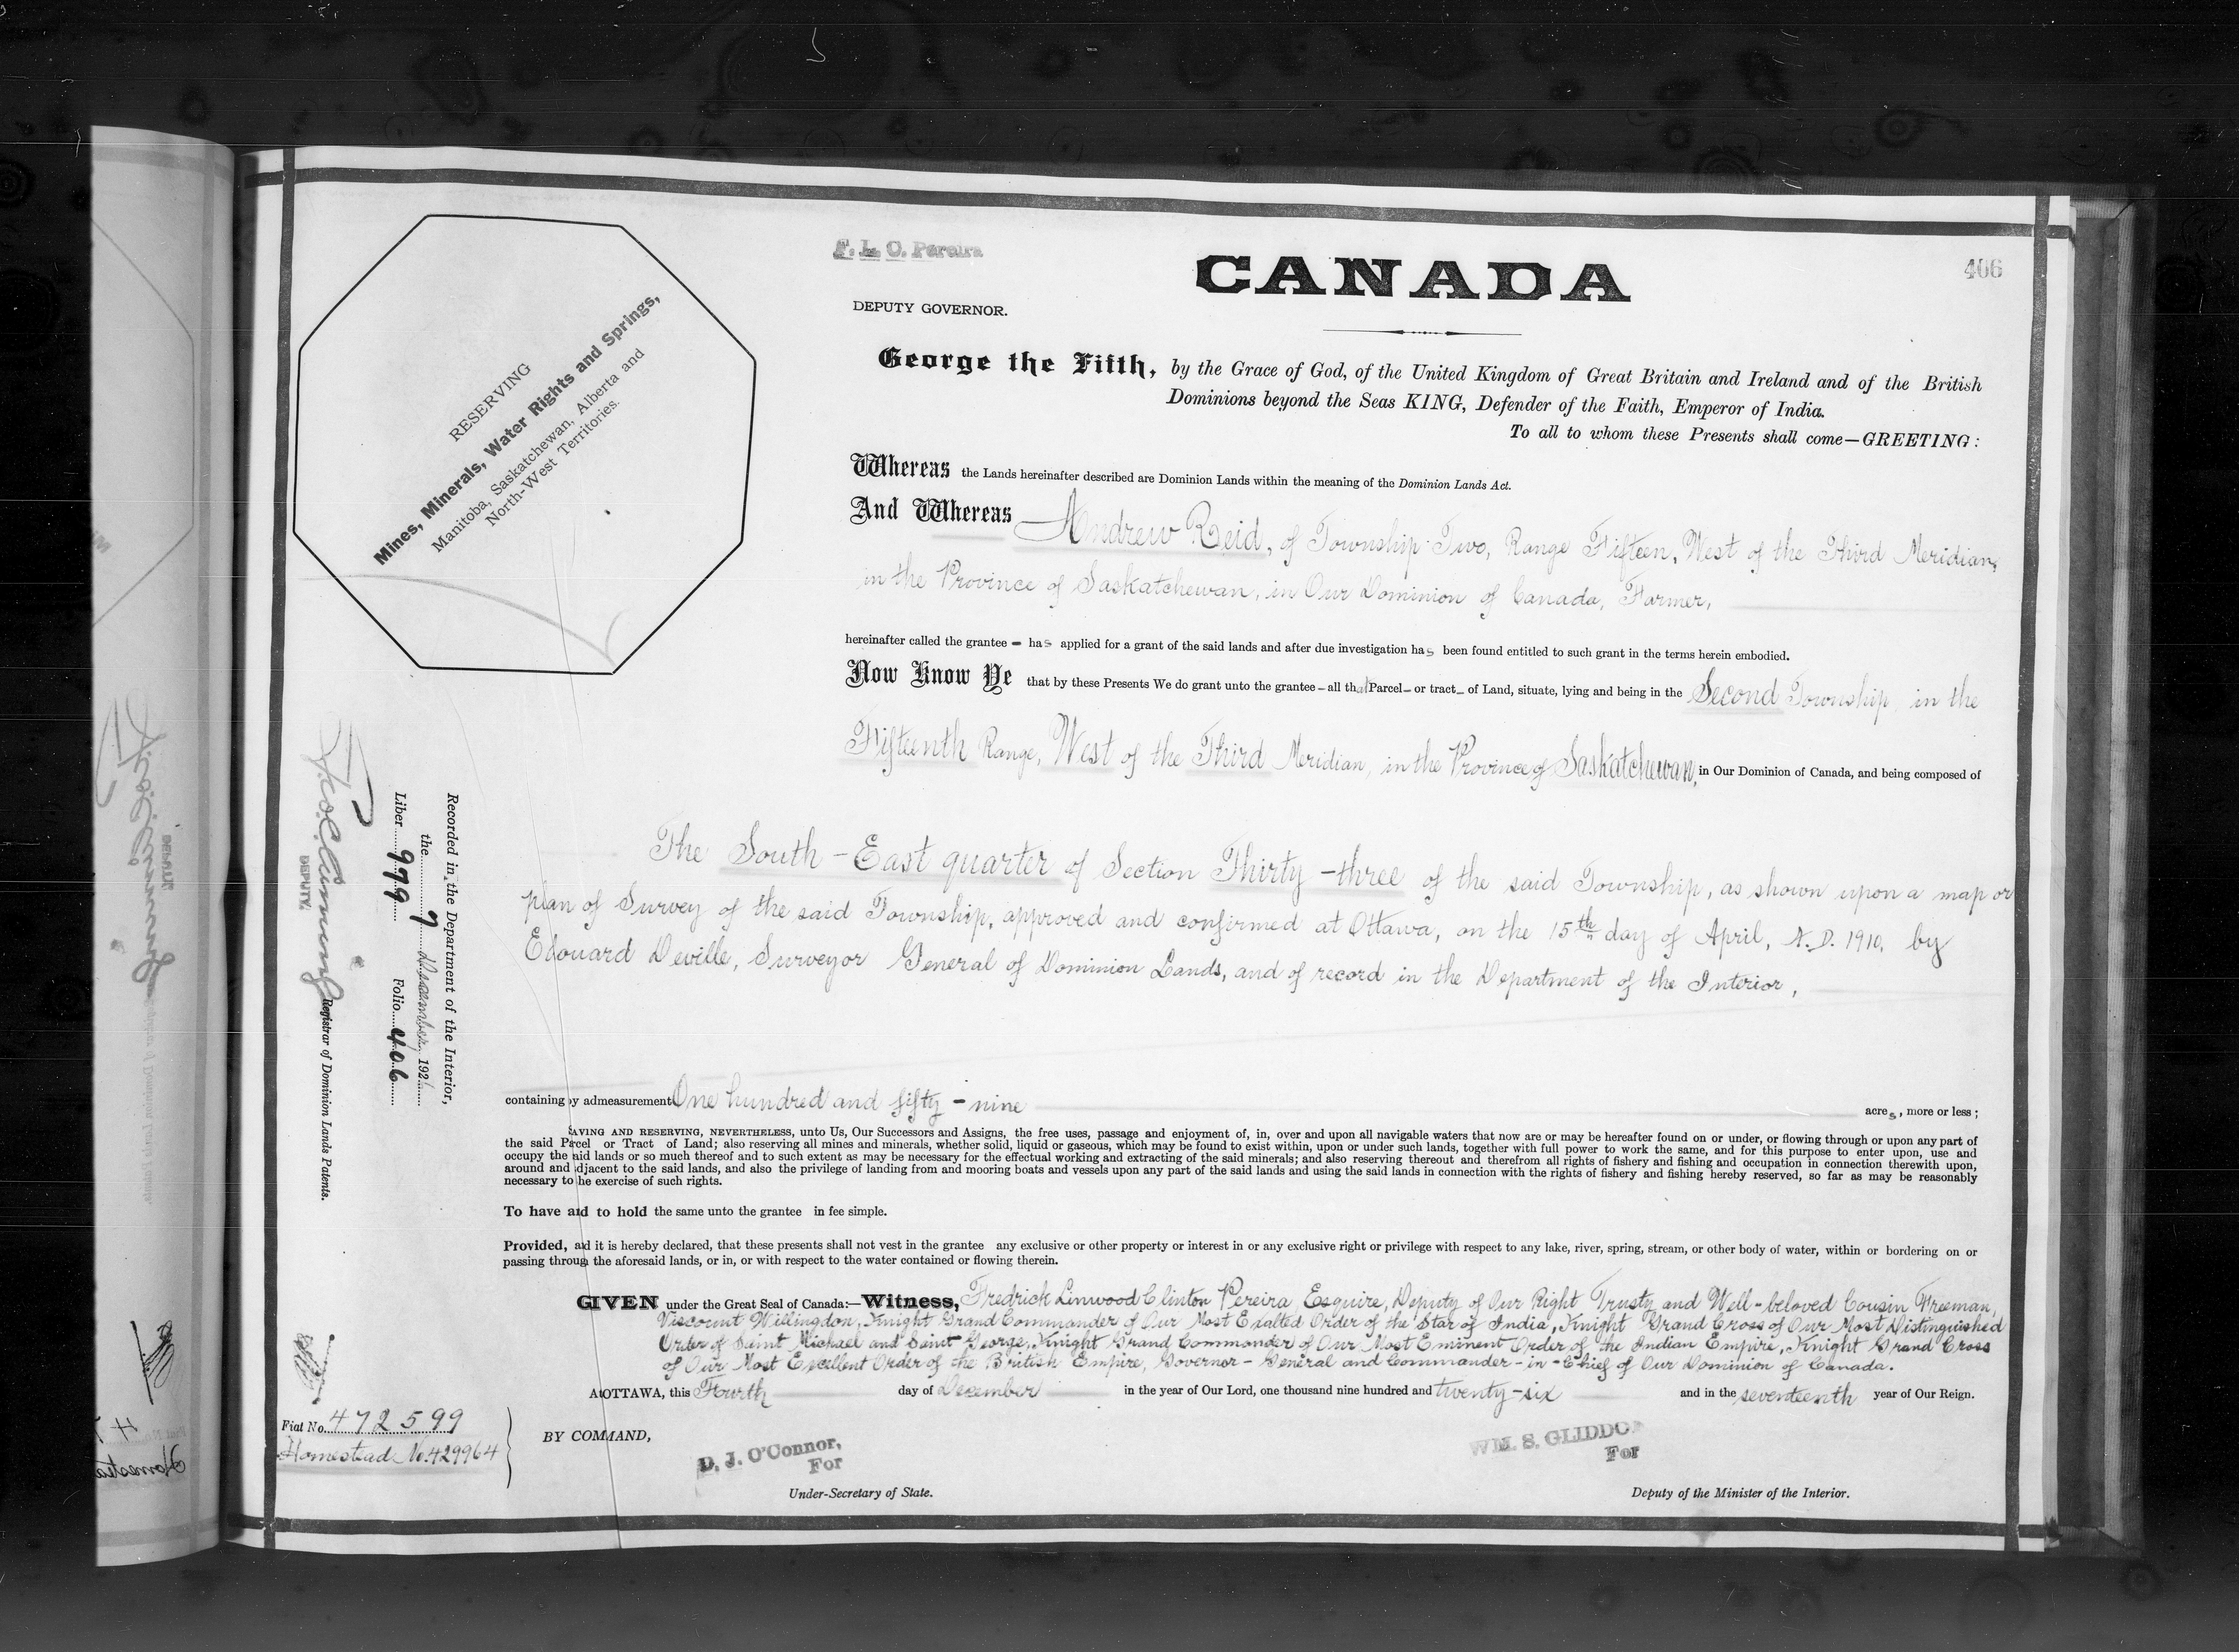 F. L. C. Pereira
CANADA
406
DEPUTY GOVERNOR.
RESERVING
Mines, Minerals, Water Rights and Springs,
Manitoba, Saskatchewan, Alberta and
North-West Territories.
George the Fifth, by the Grace of God, of the United Kingdom of Great Britain and Ireland and of the British
Dominions beyond the Seas KING, Defender of the Faith, Emperor of India.
To all to whom these Presents shall come—GREETING:
Whereas the Lands hereinafter described are Dominion Lands within the meaning of the Dominion Lands Act.
And Whereas Andrew Reid, of Township Two, Range Fifteen, West of the Third Meridian,
in the Province of Saskatchewan, in Our Dominion of Canada, Farmer,
hereinafter called the grantee - has applied for a grant of the said lands and after due investigation has been found entitled to such grant in the terms herein embodied.
Now Know Ye that by these Presents We do grant unto the grantee - all that Parcel - or tract - of Land, situate, lying and being in the Second Township, in the
Fifteenth Range, West of the Third Meridian, in the Province of Saskatchewan, in Our Dominion of Canada, and being composed of
The South-East quarter of Section Thirty-three of the said Township, as shown upon a map or
plan of Survey of the said Township, approved and confirmed at Ottawa, on the 15th day of April, A.D. 1910, by
Edouard Deville, Surveyor General of Dominion Lands, and of record in the Department of the Interior,
containing by admeasurement One hundred and fifty-nine acres, more or less;
SAVING AND RESERVING, NEVERTHELESS, unto Us, Our Successors and Assigns, the free uses, passage and enjoyment of, in, over and upon all navigable waters that now are or may be hereafter found on or under, or flowing through or upon any part of
the said Parcel or Tract of Land; also reserving all mines and minerals, whether solid, liquid or gaseous, which may be found to exist within, upon or under such lands, together with full power to work the same, and for this purpose to enter upon, use and
occupy the said lands or so much thereof and to such extent as may be necessary for the effectual working and extracting of the said minerals; and also reserving thereout and therefrom all rights of fishery and fishing and occupation in connection therewith upon,
around and adjacent to the said lands, and also the privilege of landing from and mooring boats and vessels upon any part of the said lands and using the said lands in connection with the rights of fishery and fishing hereby reserved, so far as may be reasonably
necessary to the exercise of such rights.
To have and to hold the same unto the grantee in fee simple.
Provided, and it is hereby declared, that these presents shall not vest in the grantee any exclusive or other property or interest in or any exclusive right or privilege with respect to any lake, river, spring, stream, or other body of water, within or bordering on or
passing through the aforesaid lands, or in, or with respect to the water contained or flowing therein.
GIVEN under the Great Seal of Canada:—Witness, Fredrick Linwood Clinton Pereira, Esquire, Deputy of Our Right Trusty and Well-beloved Cousin Freeman,
Viscount Willingdon, Knight Grand Commander of Our Most Exalted Order of the Star of India, Knight Grand Cross of Our Most Distinguished
Order of Saint Michael and Saint George, Knight Grand Commander of Our Most Eminent Order of the Indian Empire, Knight Grand Cross
of Our Most Excellent Order of the British Empire, Governor-General and Commander-in-Chief of Our Dominion of Canada.
At OTTAWA, this Fourth day of December in the year of Our Lord, one thousand nine hundred and twenty-six and in the seventeenth year of Our Reign.
BY COMMAND,
D. J. O'Connor,
For
Under-Secretary of State.
WM. S. GLIDDO
For
Deputy of the Minister of the Interior.
Recorded in the Department of the Interior,
the 7 December, 1926
Liber 979 Folio 406
DEPUTY.
Registrar of Dominion Lands Patents.
Fiat No. 472599
Homestead No. 429964